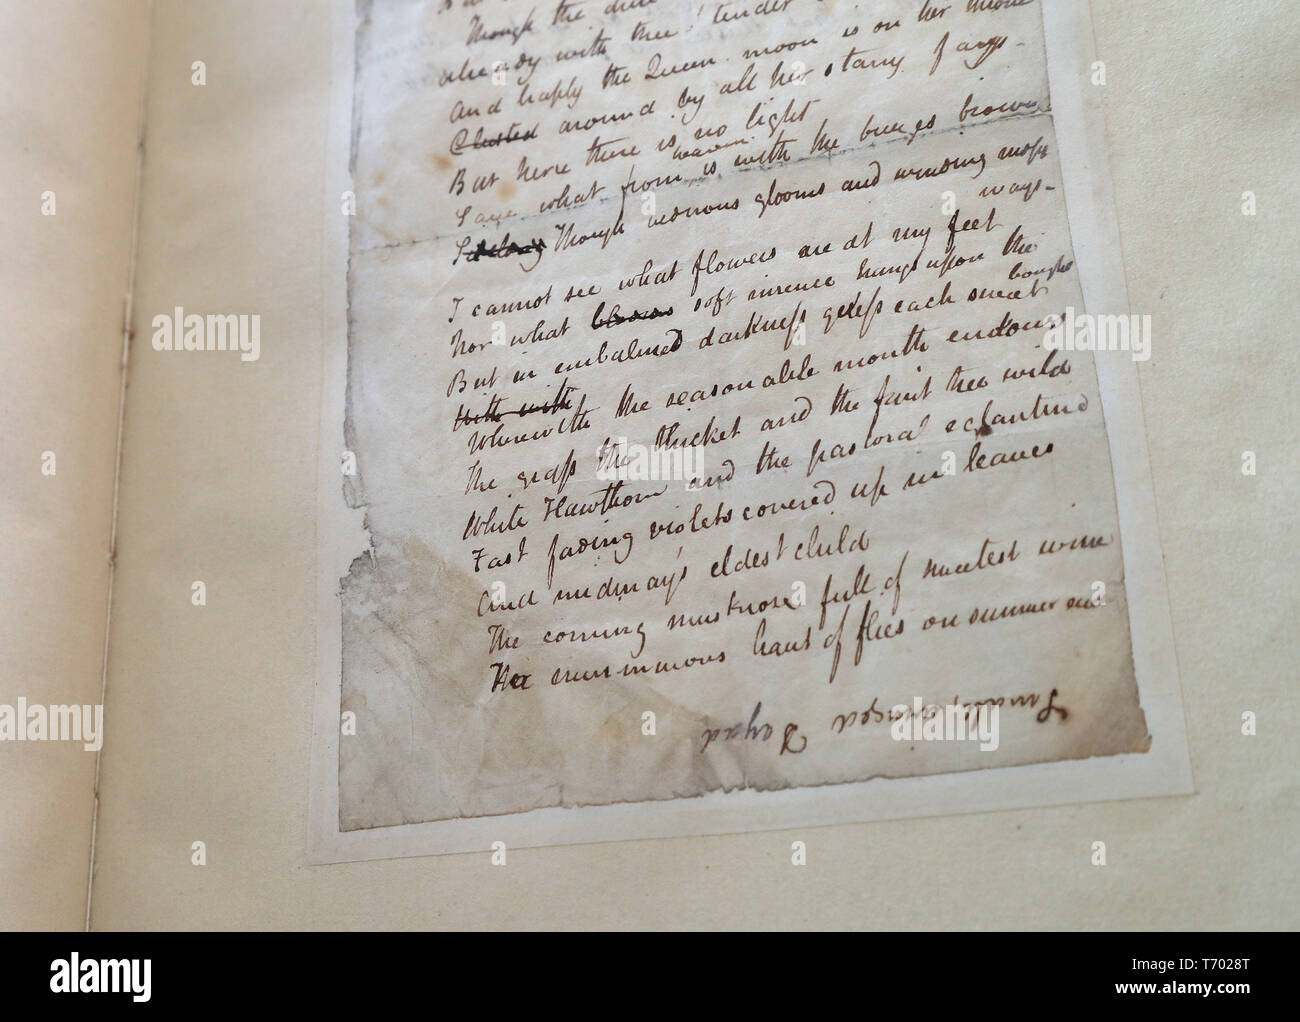 Though the dull
already with thee! tender
And haply the Queen-moon is on her throne
Clusted around by all her starry fays-
But here there is no light
heaven
Save what from is with the breezes blown
Sidelong Though verdurous glooms and winding mossy
ways-
I cannot see what flowers are at my feet
Nor what blooms soft incense hangs upon the
boughs
But in embalmed darkness guess each sweet
With with
Wherewith the seasonable month endows
The grass the thicket and the fruit tree wild
White Hawthorn and the pastoral eglantine
Fast fading violets covered up in leaves
And midmay's eldest child
The coming muskrose full of sweetest wine
The murmurous haunt of flies on summer eves
alamy
alamy
Image ID: T7028T
www.alamy.com